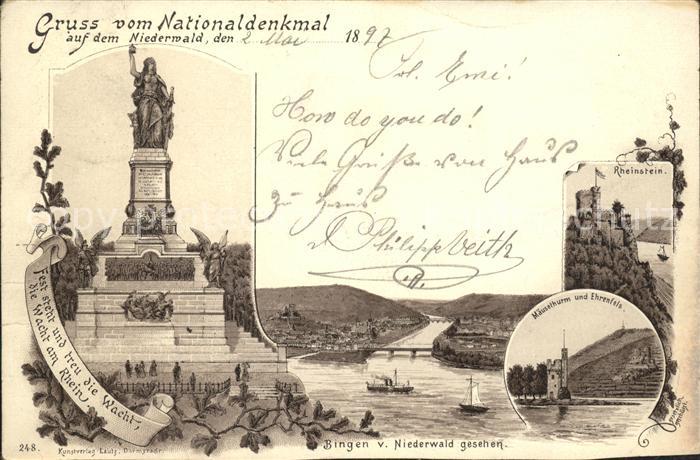 Gruss vom Nationaldenkmal
auf dem Niederwald, den 2 Mai 1897
Emi!
How do you do!
Viele Grüße von Haus
zu Haus
Philipp Veith
Rheinstein.
Mäusethurm und Ehrenfels.
Fest steht und treu die Wacht,
die Wacht am Rhein!
Bingen v. Niederwald gesehen.
248. Kunstverlag Lautz, Darmstadt.